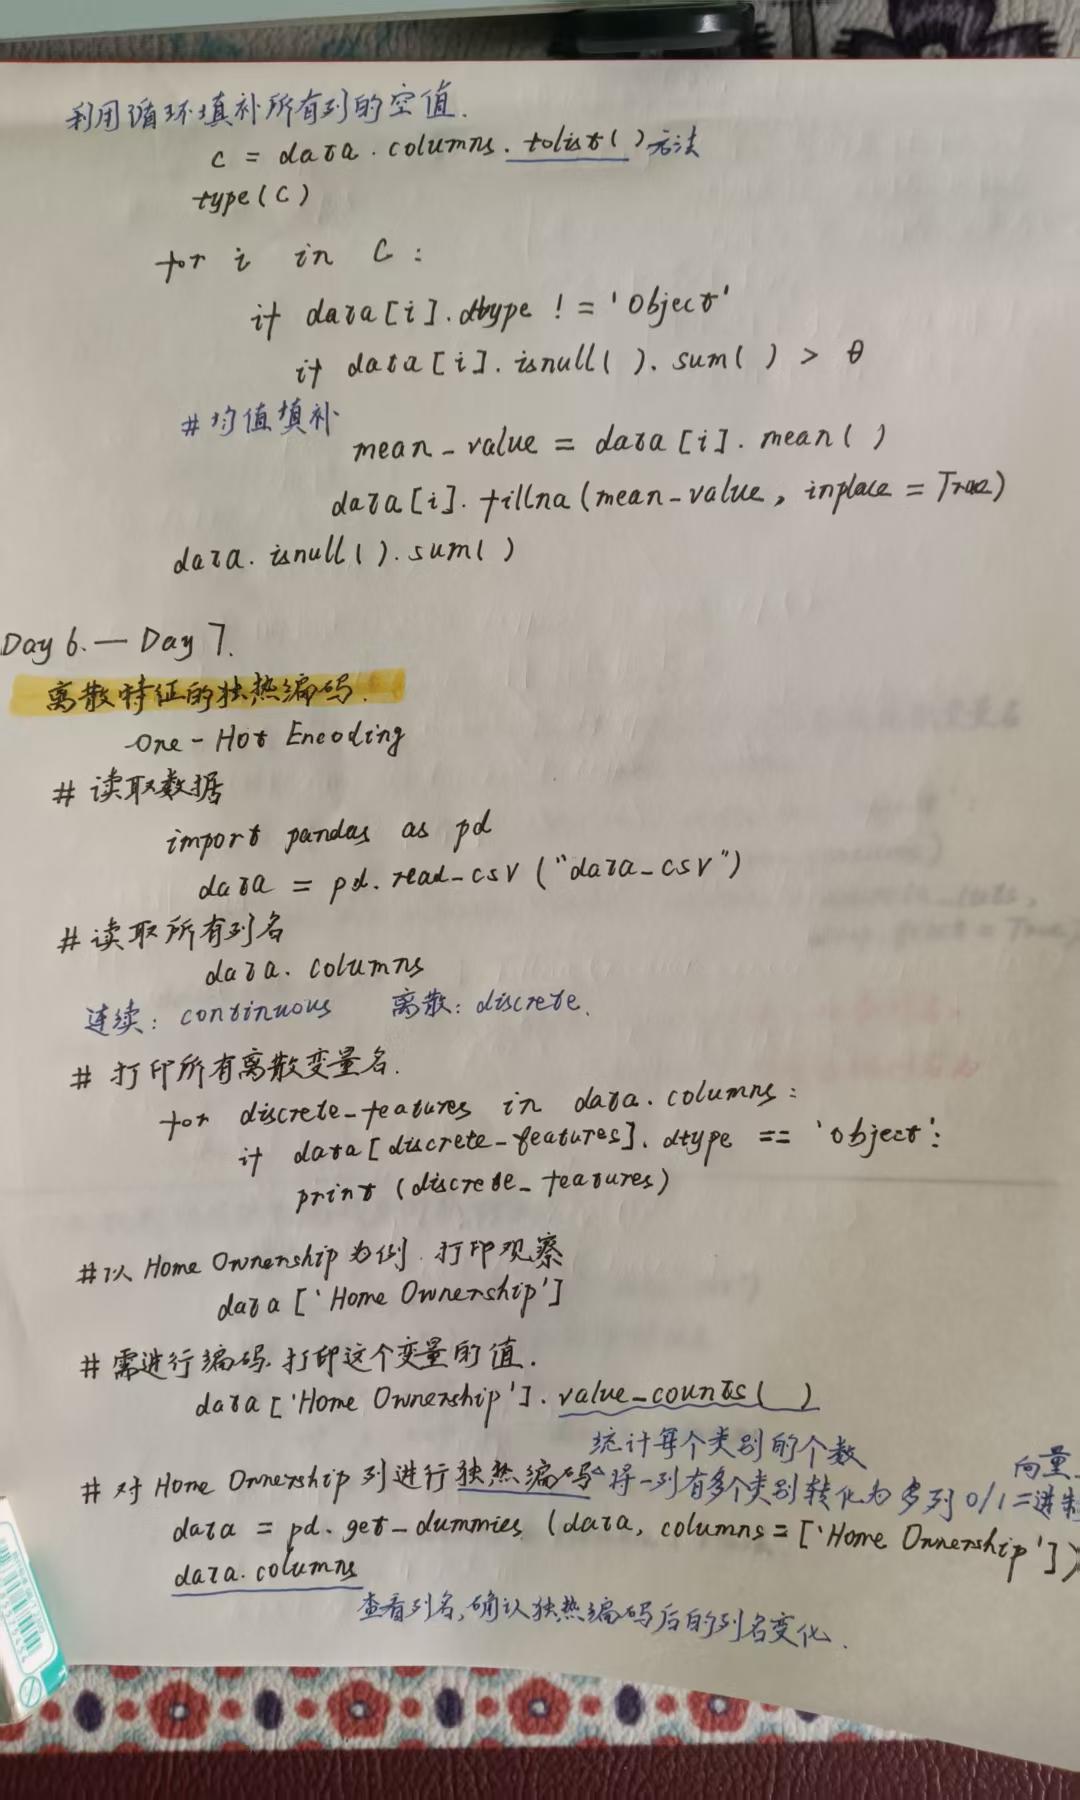 利用循环填补所有列的空值.
c = data.columns.tolist()方法
type(c)
for i in c:
if data[i].dtype != 'Object'
if data[i].isnull().sum() > 0
#均值填补
mean_value = data[i].mean()
data[i].fillna(mean_value, inplace=True)
data.isnull().sum()
Day 6.— Day 7.
离散特征的独热编码.
One-Hot Encoding
# 读取数据
import pandas as pd
data = pd.read_csv("data_csv")
# 读取所有列名
data.columns
连续: continuous 离散: discrete.
# 打印所有离散变量名.
for discrete_features in data.columns:
if data[discrete_features].dtype == 'object':
print(discrete_features)
#以 Home Ownership 为例. 打印观察
data['Home Ownership']
# 需进行编码.打印这个变量的值.
data['Home Ownership'].value_counts()
统计每个类别的个数
向量.
# 对 Home Ownership 列进行独热编码 将一列有多个类别转化为多列0/1二进制
data = pd.get_dummies(data, columns=['Home Ownership'])
data.columns
查看列名,确认独热编码后的列名变化.